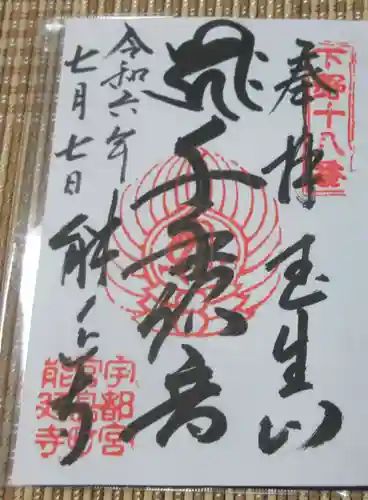 奉拝
下野十八番
玉生山
千手観音
令和六年
七月七日
能延寺
宇都宮
宮島町
能延寺